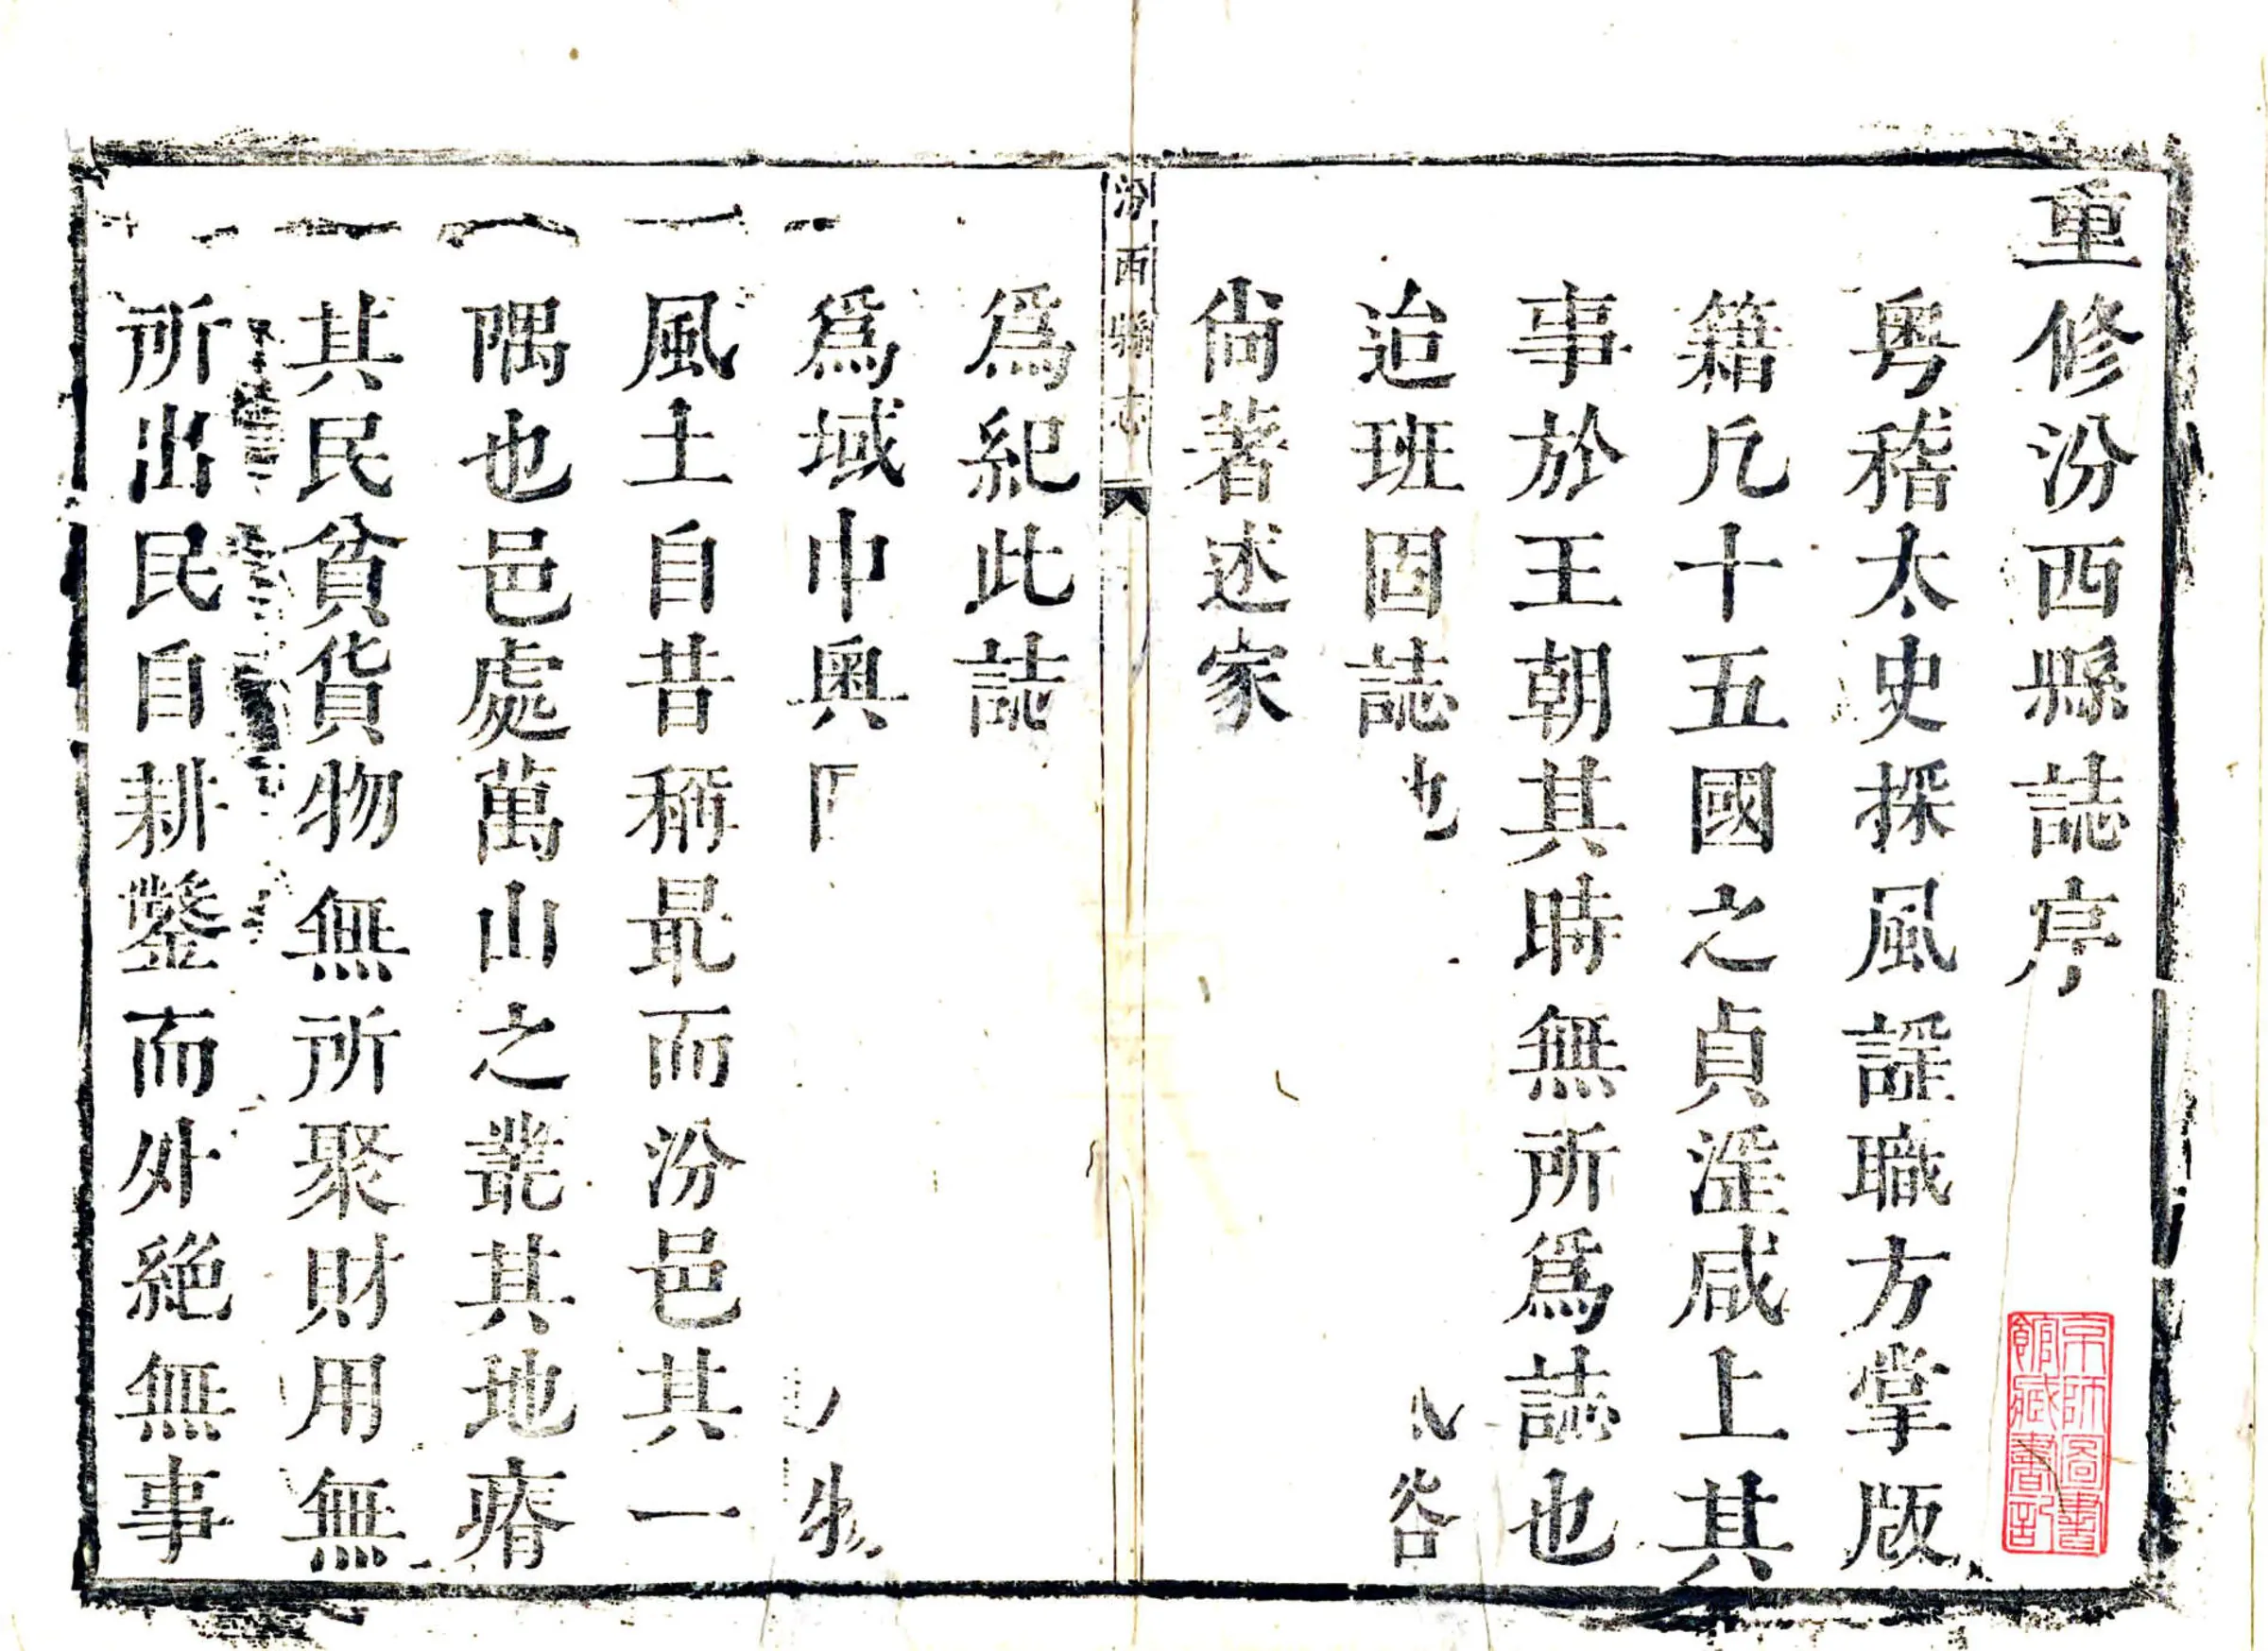 重修汾西縣誌序
粵稽太史採風謠職方掌版
籍凡十五國之貞淫咸上其
事於王朝其時無所爲誌也
迨班固誌也
尙著述家
汾西縣志
爲紀此誌
爲域中奧區物
風土自昔稱最而汾邑其一
隅也邑處萬山之叢其地瘠
其民貧貨物無所聚財用無
所出民自耕鑿而外絶無事
京師圖書
館藏書記